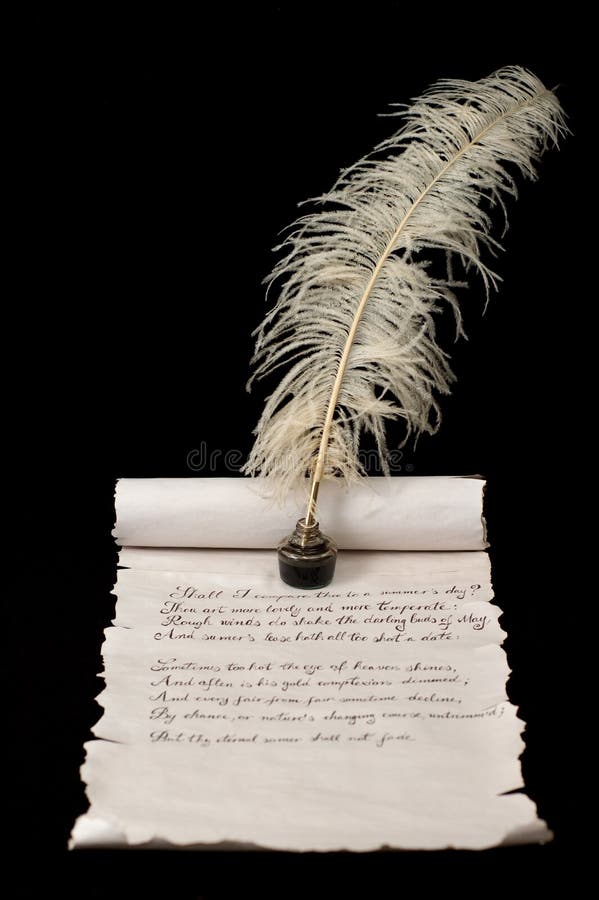 Shall I compare thee to a summer's day?
Thou art more lovely and more temperate:
Rough winds do shake the darling buds of May,
And sumer's lease hath all too shot a date:
Sometimes too hot the eye of heaven shines,
And often is his gold complexions dimmed;
And every fair from fair sometime decline,
By chance, or nature's changing course, untrimm'd;
But thy eternal sumer shall not fade
dreamstime